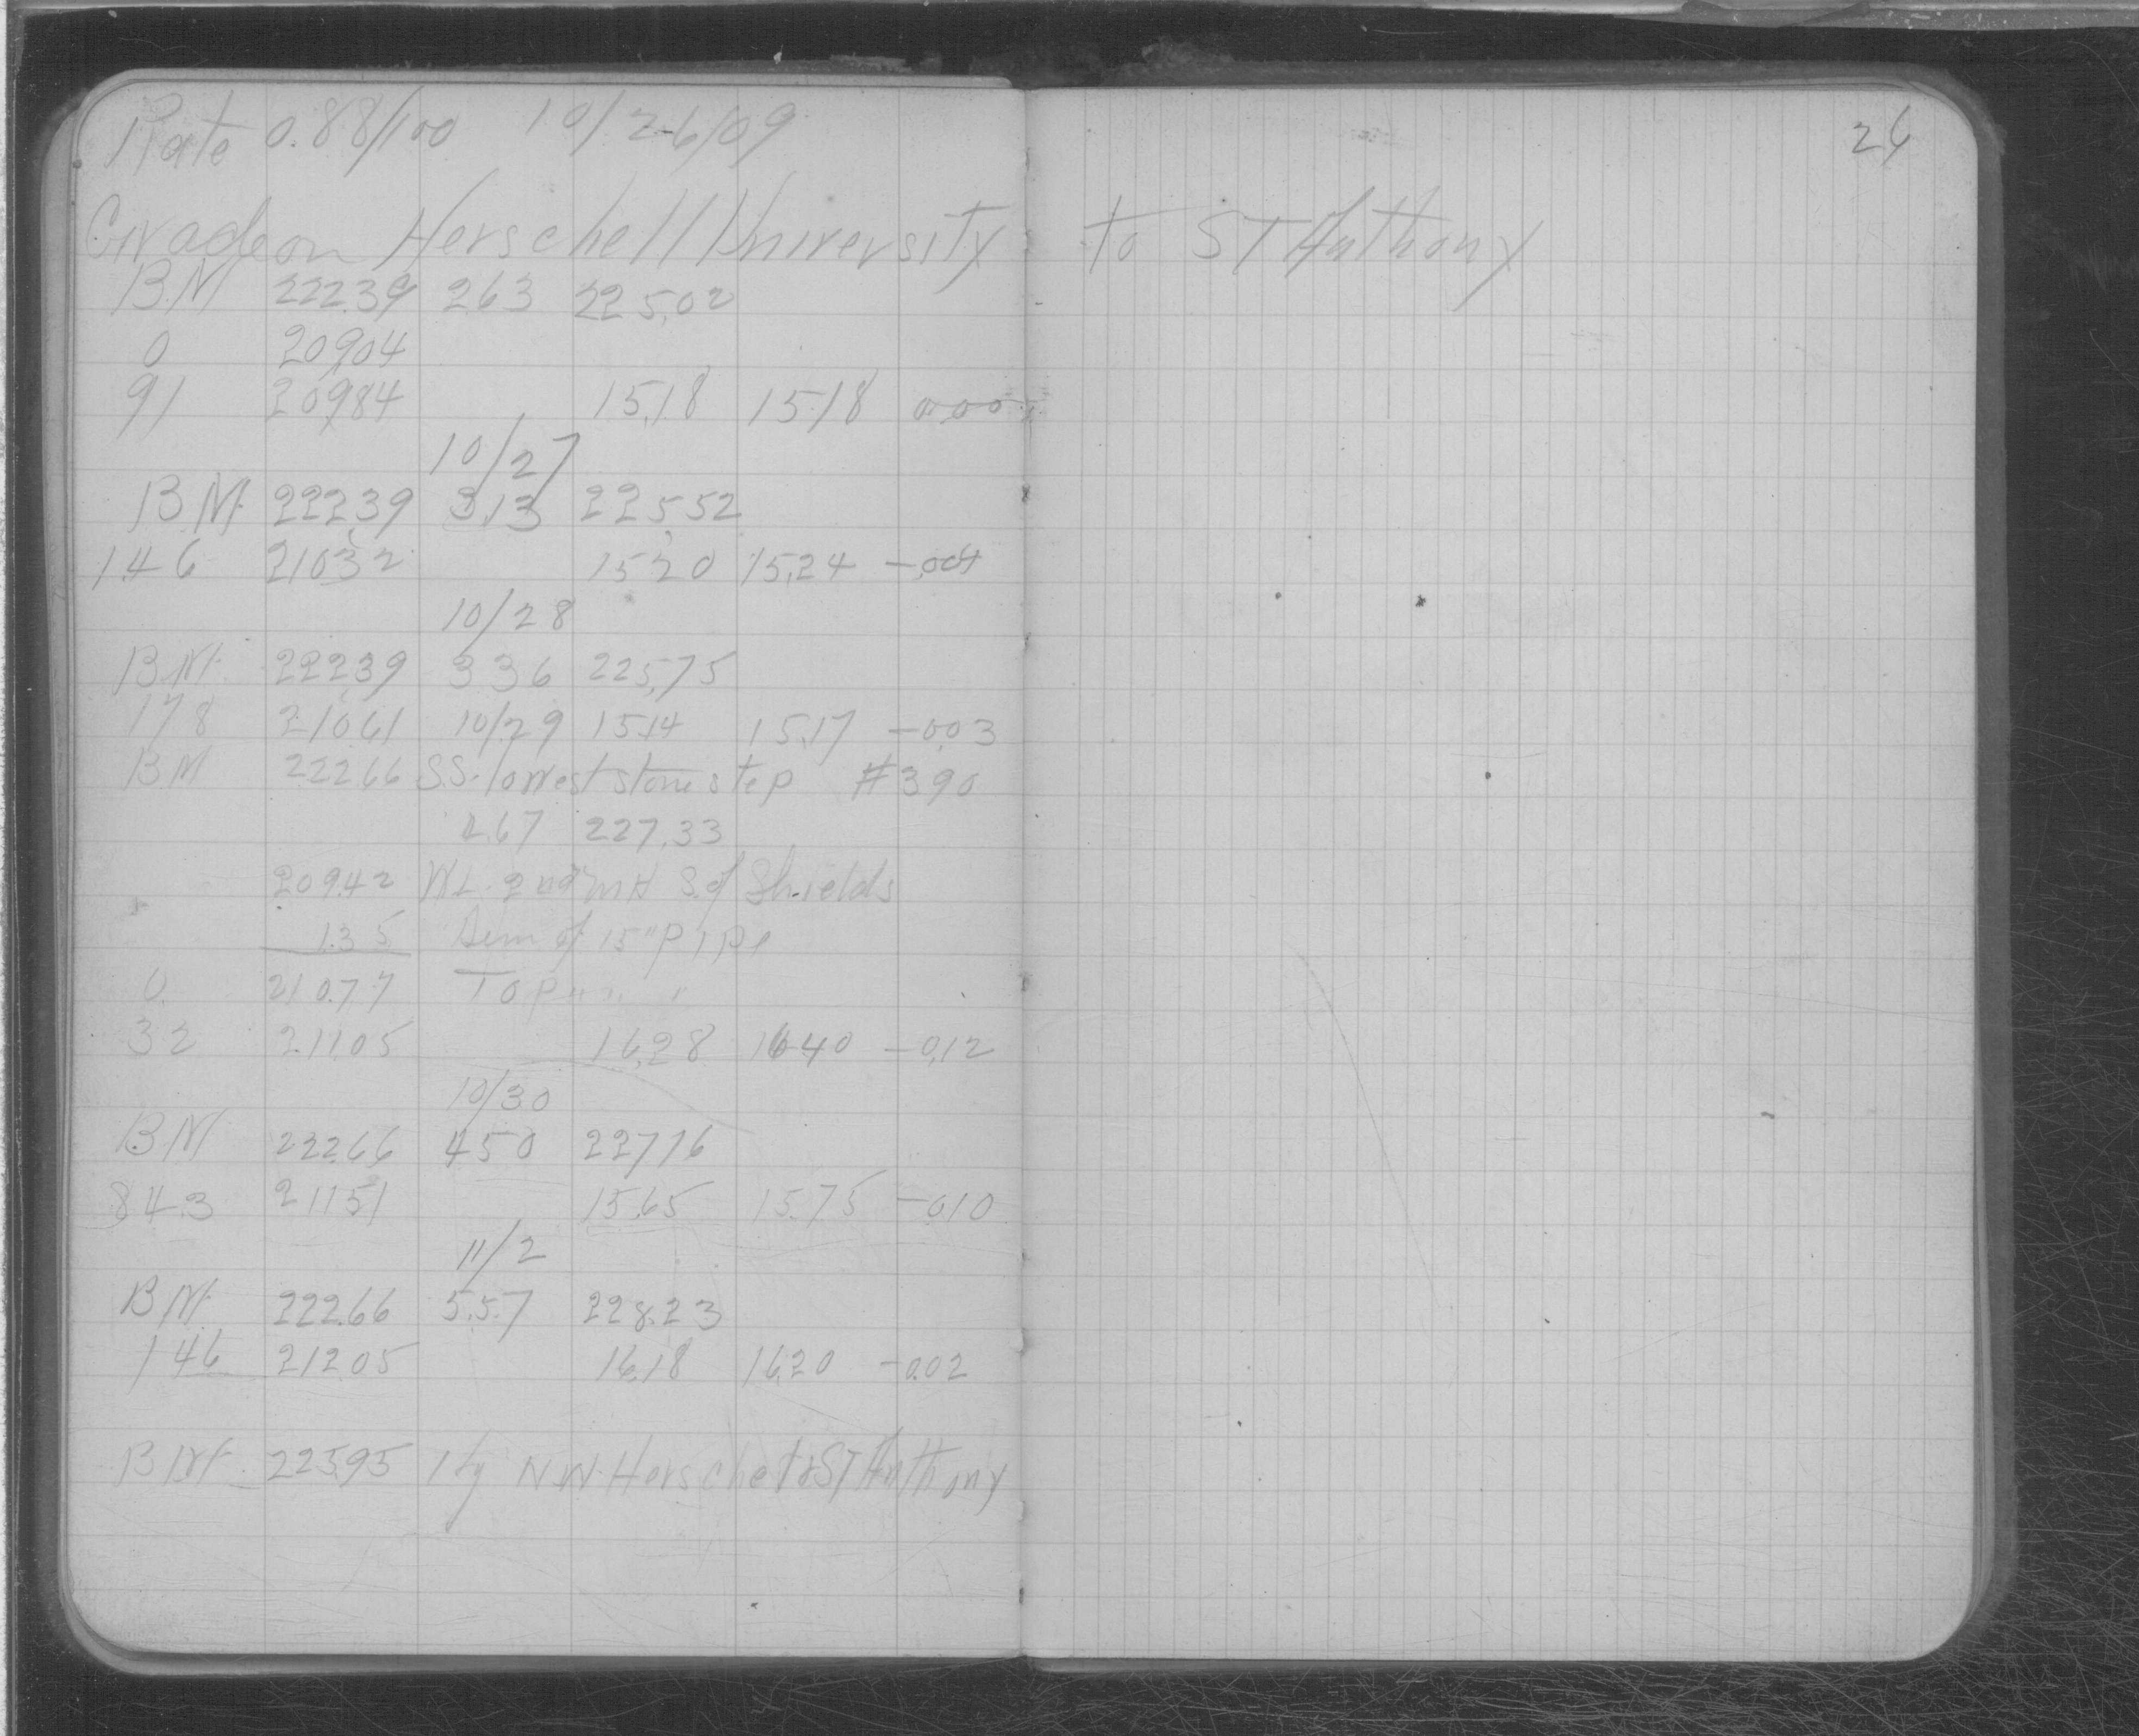 Rate 0.88/100 10/26/09
26
Grade on Herschell University to ST Anthony
B.M 222.39 2.63 225.02
0 209.04
91 209.84 15.18 15.18 0.00
10/27
B.M. 222.39 3.13 225.52
146 210.32 15.20 15.24 -.004
10/28
B.M. 222.39 3.36 225.75
178 210.61 10/29 15.14 15.17 -0.03
B.M 222.66 S.S. lowest stone step #390
4.67 227.33
209.42 W.L. 2nd MH S. of Shields
1.35 Diem of 15" Pipe
0 210.77 Top " " "
32 211.05 16.28 16.40 -0.12
10/30
B.M 222.66 4.50 227.16
84.3 211.51 15.65 15.75 -0.10
11/2
B.M. 222.66 5.57 228.23
146 212.05 16.18 16.20 -0.02
B.M. 225.95 Hy N.W. Herschel & ST Anthony